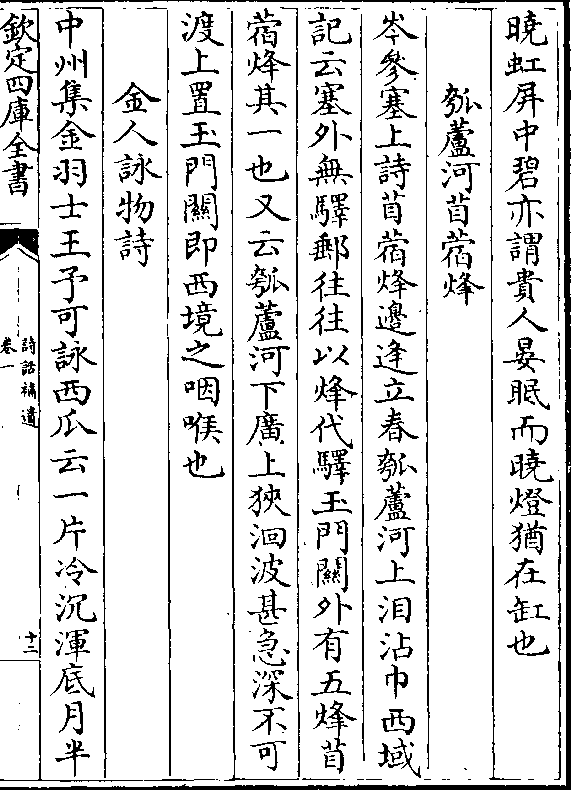 曉虹屏中碧亦謂貴人晏眠而曉燈猶在缸也
瓠蘆河苜蓿烽
岑參塞上詩苜蓿烽邊逢立春瓠蘆河上淚沾巾西域
記云塞外無驛郵往往以烽代驛玉門關外有五烽苜
蓿烽其一也又云瓠蘆河下廣上狹洄波甚急深不可
渡上置玉門關即西境之咽喉也
金人詠物詩
中州集金羽士王予可詠西瓜云一片冷沉渾底月半
欽定四庫全書
詩話補遺
卷一
十二